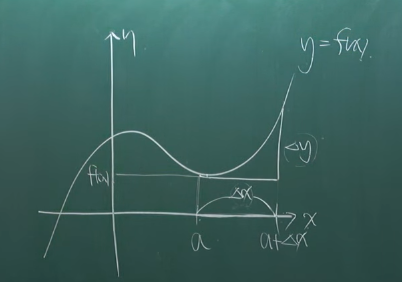 y
y = f(x)
Δy
f(a)
Δx
x
a
a+Δx